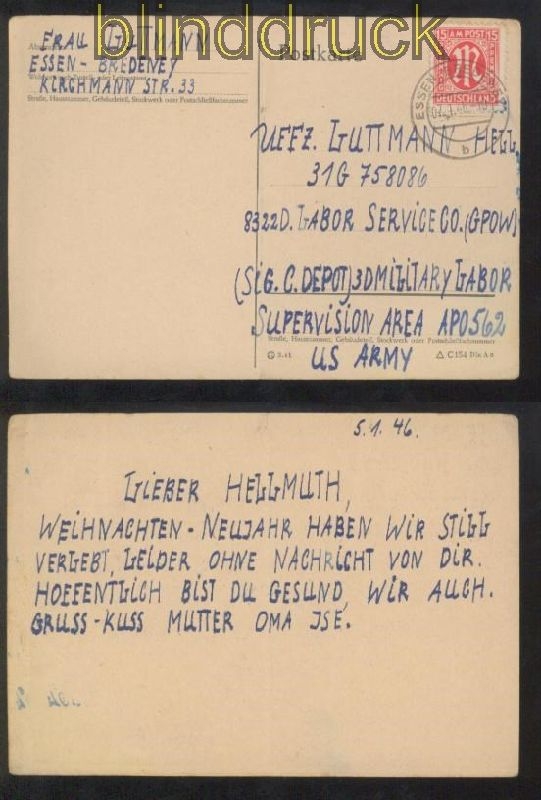 blinddruck
FRAU GUTTMANN
ESSEN - BREDENEY
KIRCHMANN STR. 33
Straße, Hausnummer, Gebäudeteil, Stockwerk oder Postschließfachnummer
Postkarte
15 AM POST 15
DEUTSCHLAND
ESSEN
b
UFFZ. GUTTMANN HELL.
31G 758086
8322D. LABOR SERVICE CO. (GPOW)
(SIG. C. DEPOT) 3D MILITARY LABOR
SUPERVISION AREA APO 562
Straße, Hausnummer, Gebäudeteil, Stockwerk oder Postschließfachnummer
US ARMY
C 154 Din A 6
5.1.46.
LIEBER HELLMUTH,
WEIHNACHTEN - NEUJAHR HABEN WIR STILL
VERLEBT, LEIDER OHNE NACHRICHT VON DIR.
HOFFENTLICH BIST DU GESUND, WIR AUCH.
GRUSS - KUSS MUTTER OMA ISE.